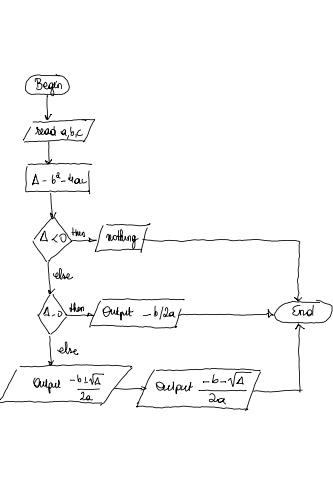 Begin
read a,b,c
Δ - b² - 4ac
Δ < 0
then
nothing
else
Δ - 0
then
Output -b/2a
End
else
Output -b±√Δ/2a
Output -b-√Δ/2a